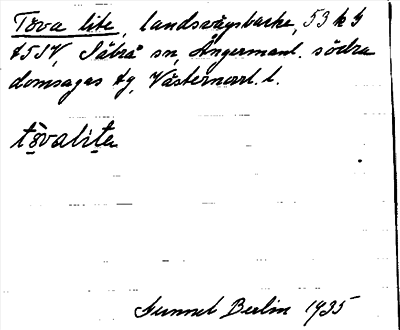 Töva lite, landsvägsbacke, 53 k b
t5SV, Säbrå sn, Ångermanl. södra
domsagas tg, Västernorrl. l.
tövalite
Gunnel Berlin 1935